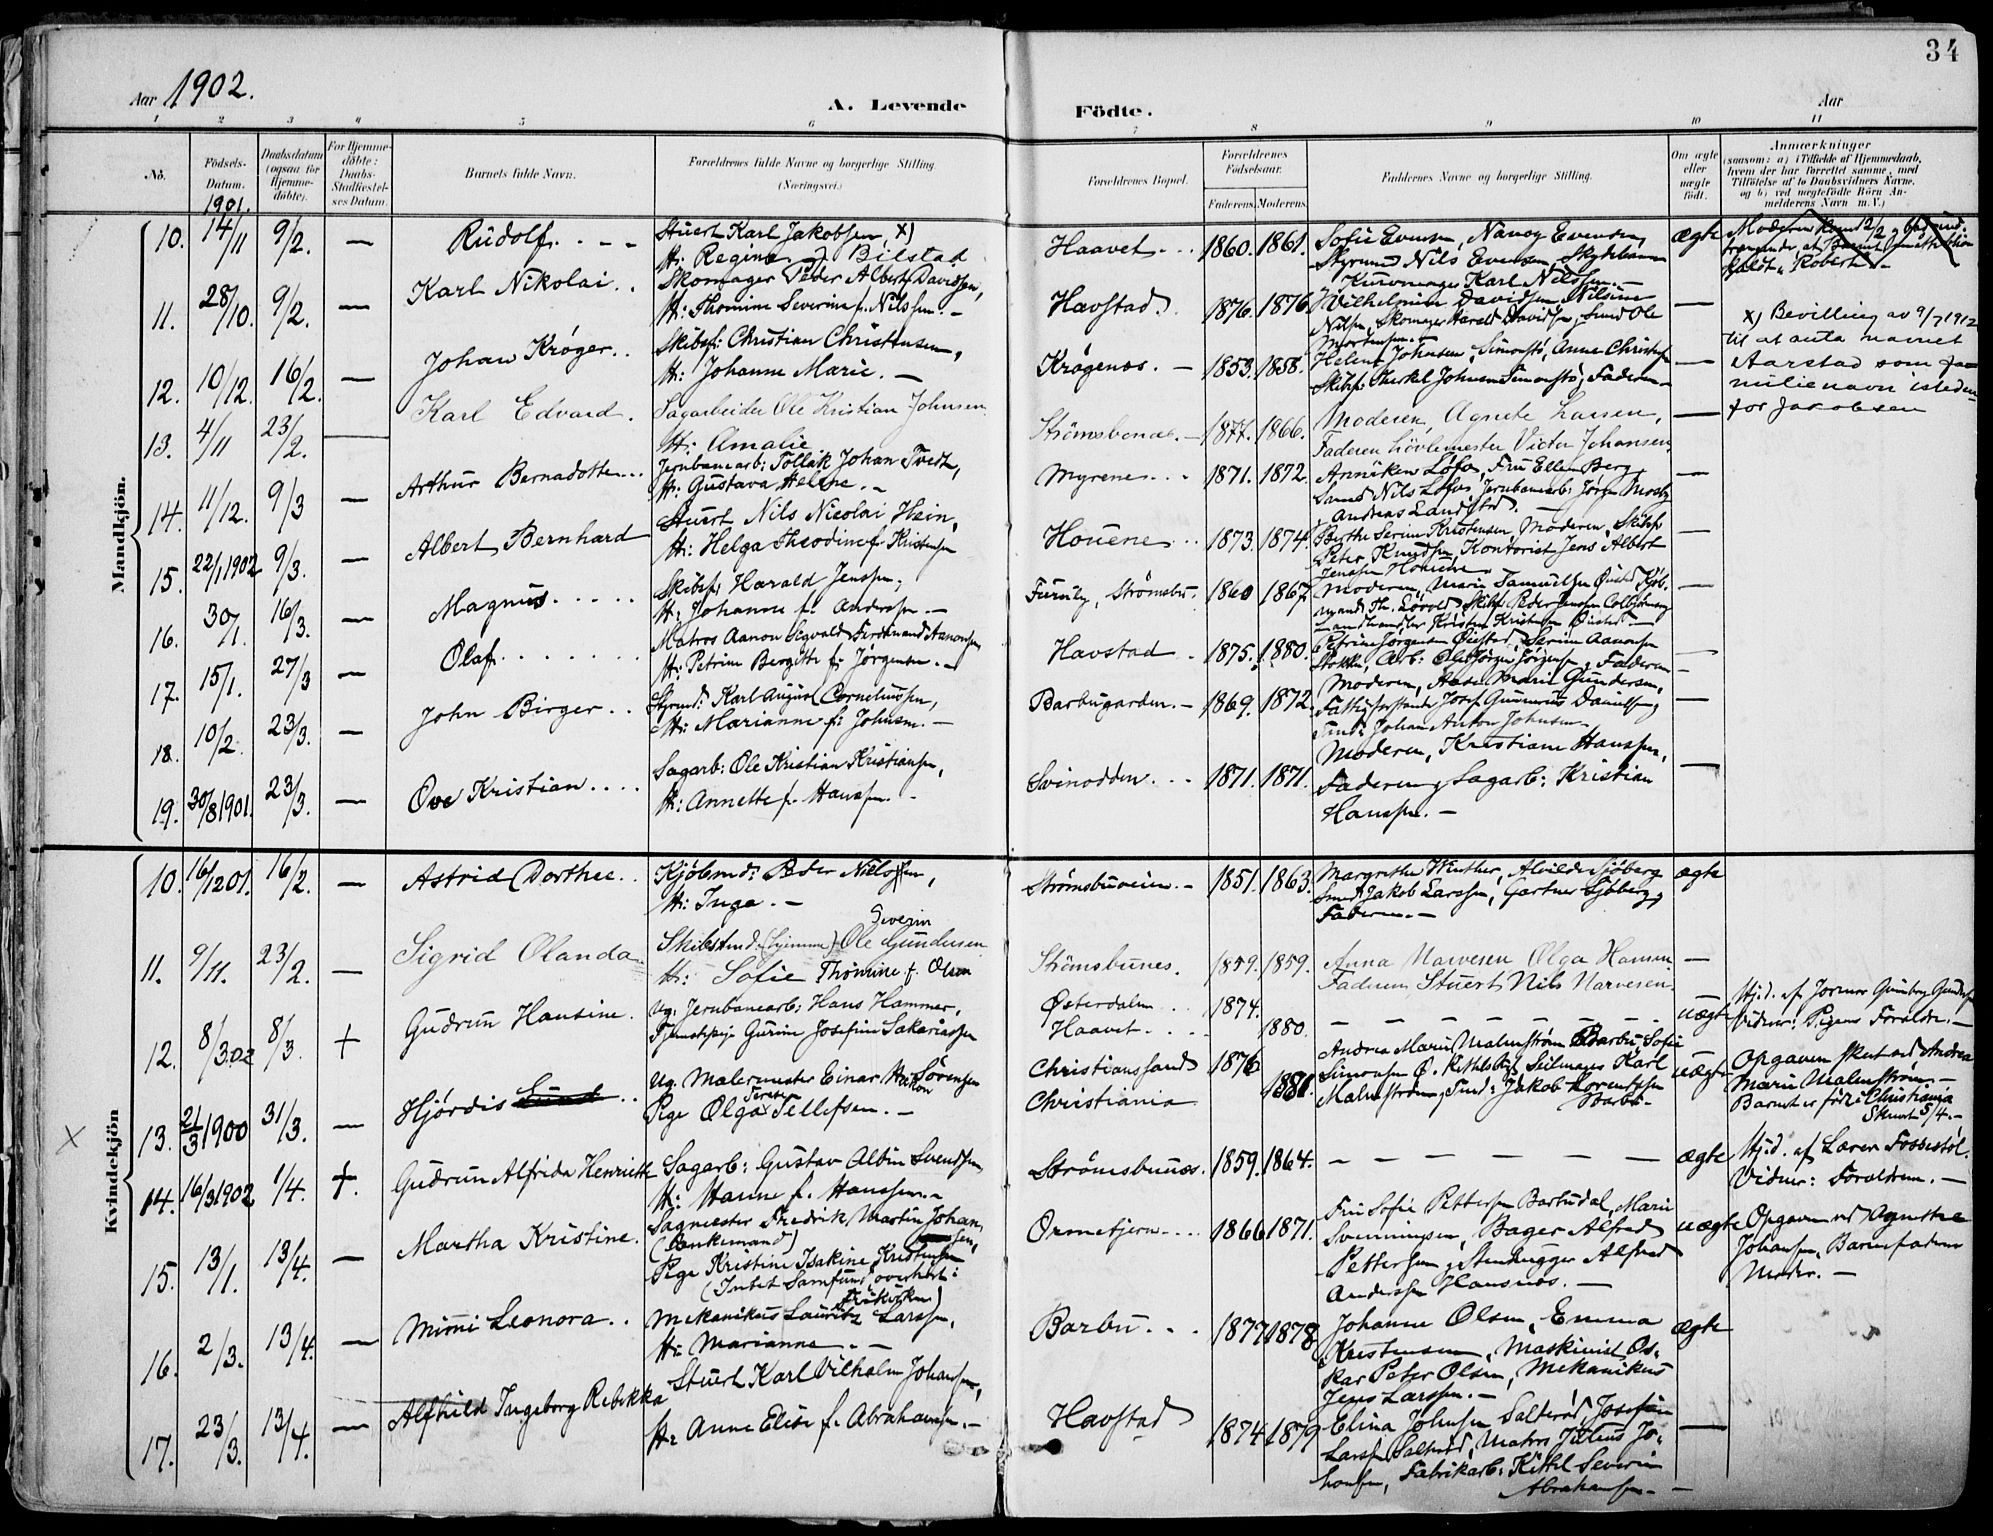 34
Aar 1902.
A. Levende Födte.
Aar
1 2 3 4 5 6 7 8 9 10 11
No.
Födsels-Datum.
Daabsdatum (ogsaa for Hjemme-døbte).
For Hjemme-döbte: Daabs-Stadfæstel-ses Datum.
Barnets fulde Navn.
Forældrenes fulde Navne og borgerlige Stilling (Næringsvei.)
Forældrenes Bopæl.
Forældrenes Födselsaar.
Faderens. Moderens.
Faddernes Navne og borgerlige Stilling.
Om ægte eller uægte födt.
Anmærkninger
(saasom: a) i Tilfælde af Hjemmedaab, hvem der har forrettet samme, med Tilföielse af to Daabsvidners Navne, og b) ved uægtefödte Börn An-melderens Navn m. V.)
Mandkjön.
1901.
10. 14/11 9/2. — Rudolf. Stuert Karl Jakobsen, X)
H: Regine Bilstad
Haavet. 1860. 1861. Sofie Evensen, Nanoy Evensen,
Styrmand Nils Evensen,
Kurvmager Karl Nilssen. —
ægte
11. 28/10. 9/2. — Karl Nikolai. Skomager Peder Albert Davidsen,
H: Thomine Severine f. Nilssen. —
Havstad. 1876. 1876. Wilhelmine Davidsen, Nilsine
Nilsen, Skomager Harald Davidsen, Smed Ole
Mortensen. —
X) Bevilling av 9/7 1912
til at anta navnet
Aarstad som fa-
milienavn isteden-
for Jakobsen
12. 10/12. 16/2. — Johan Krøger. Skibsf: Christian Christensen,
H: Johanne Marie. —
Krøgenæs. — 1853. 1858. Helene Johnsen, Simonstø, Anne Christensen
Skibsf: Therkel Johnsen Simonstø, Faderen —
13. 4/11 23/2. — Karl Edvard. Sagarbeider Ole Kristian Johnsen.
H: Amalie
Strömsbunæs. — 1877. 1866. Moderen, Agnete Larsen,
Faderen Lövlemester Victor Johansen
14. 11/12. 9/3 — Arthur Bernadotte. Jernbanearb: Tollak Johan Tvedt,
H: Gustava Helene. —
Myrene. 1871. 1872. Anniken Løfos, Fru Ellen Berg,
Smed Nils Løfos, Jernbanearb: Jørgen Mosby
Andreas Landstad. —
15. 22/1 1902 9/3. — Albert Bernhard Stuert Nils Nicolai Hein,
H: Helga Theodine f. Kristensen
Houene. 1873. 1874. Berthe Serine Kristensen, Moderen, Skibsf:
Peter Knudsen, Kontorist Jens Albert
Jenssen Houene.
16. 30/1. 16/3. — Magnus. Skibsf: Harald Jenssen,
H: Johanne f. Anderssen. —
Furuly, Strömsbu. 1860 1867. Moderen, Marie Samuelsen Øisted, Kjöb-
mand Th. Løvold, Skibsf: Peder Jensen Colbjørnsvig
Landhandler Kristen Kristensen Øisted. —
17. 15/1. 27/3 — Olaf. Matros Aanon Sigvald Ferdinand Aanonsen
H: Petrine Bergitte f. Jørgensen. —
Havstad. 1875. 1880. Petrine Jørgensen Øiestad, Serine Aanonsen
Stokken, Arb: Ole Jørgen Jørgensen, Faderen —
18. 10/2. 23/3. — John Birger. Styrmd: Karl August Corneliussen,
H: Marianne f: Johnsen. —
Barbugarden. — 1869. 1872. Moderen, Aase Marie Gundersen,
Fattigforstander Josef Gunerius Danielsen,
Tind: Johan Anton Johnsen.
19. 30/8 1901. 23/3. — Ove Kristian. Sagarb: Ole Kristian Kristiansen,
H: Annette f. Hanssen. —
Svinodden. 1871. 1871. Moderen, Kristiane Hanssen,
Faderen, Sagarb: Kristian
Hanssen. —
Kvindekjön
10. 16/12 01. 16/2. — Astrid Dorthee. Kjöbmd: Peder Nielssen,
H: Inga. —
Strømsbuveien. — 1851. 1863. Margrethe Winther, Alvilde Sjøberg
Smed Jakob Larssen, Gartner Sjøberg,
Faderen. —
ægte
11. 9/11. 23/2. — Sigrid Olanda Skibstmd. (hjemme) Ole Severin Gundersen
H: Sofie Thomine f. Olsen
Strömsbunes. 1859. 1859. Anna Narvesen Olga Hansen
Faderen Stuert Nils Narvesen
—
12. 8/3.02 8/3. + Gudrun Hansine. Ug. Jernbanearb: Hans Hammer,
Tjenestepige Gurine Josefine Sakariassen
Østerdalen 1874.
Haavet. 1880. — — — — — — —
uægte
Hj.d. af Jormor Gunborg Gundersen
Vidner: Pigens Forældre. —
X 13. 21/3 1900 31/3. — Hjördis Ug. Malermester Einar Haakon Sörensen
Pige Olga Terese Tellefsen. —
Christianssand 1876
Christiania 1881. Andrea Marie Malmstrøm Barbu, Sofie
Simonsen Seilmager Karl
Malmstrøm, Tind: Jakob Lorentzen
Barbu.
uægte
Opgaven skeet ved Andrea
Marie Malmstrøm. —
Barnet er født i Christiania
Skrevet 5/4. —
14. 16/3 1902 1/4. +. Gudrun Alfrida Henriette Sagarb: Gustav Albin Svendsen
H: Hanne f. Hanssen. —
Strömsbunæs. 1859. 1864. — — — — — —
ægte
Hj.d. af Lærer Fossestöl.
Vidner: Forældrene. —
15. 13/1. 13/4. — Martha Kristine. Sagmester Fredrik Martin Johan-
(Enkemand) sen,
Pige Kristine Isakine Kristensen
(Intet Samfund overhørt i
Frikirken)
Ormetjern. 1866 1871. Fru Sofie Pettersen Barbudal, Marie
Svenningsen, Bager Alfred
Pettersen, Stenhugger Alfred
Anderssen Hausnæs. —
uægte
Opgaven ved Agnethe
Johansen, Barnefaderens
Moder. —
16. 2/3. 13/4. — Mimi Leonora. Mekanikus Lauritz Larssen,
H: Marianne. —
Barbu. 1877 1878 Johanne Olsen, Emma
Kristensen, Maskinist Os-
kar Peter Olsen, Mekanikus
Jens Larssen. —
ægte
17. 23/3. 13/4. — Alfhild Ingeborg Rebekka Stuert Karl Vilhelm Johansen,
H: Anne Elise f. Abrahamsen. —
Havstad 1874 1879 Elina Johnsen Salterød, Josefine
Larssen Salterød, Matros Julius Jo-
hansen, Fabrikarb: Kittel Severin
Abrahamsen. —